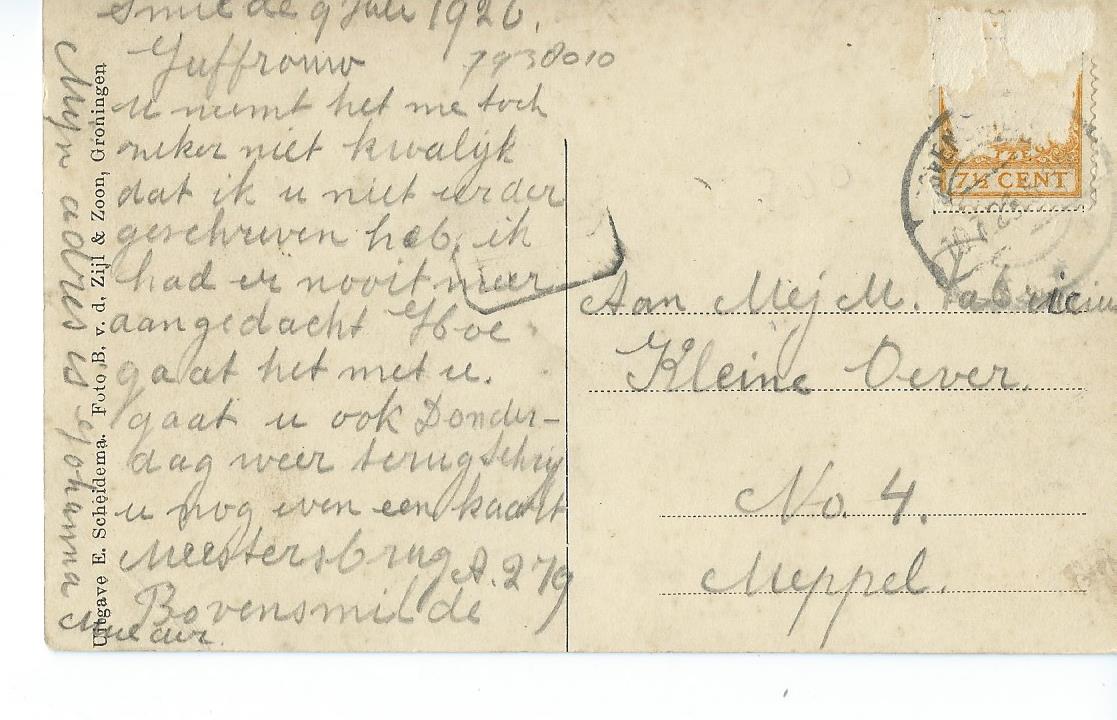 Smilde 9 Juli 1926.
Juffrouw
7938010
u neemt het me toch
zeker niet kwalijk
dat ik u niet eerder
geschreven heb, ik
had er nooit meer
aangedacht Hoe
gaat het met u.
gaat u ook Donder-
dag weer terug Schrijf
u nog even een kaart
Meestersbrug A. 279
Bovensmilde
Mijn adres is Johanna
Uitgave E. Scheidema. Foto B. v. d. Zijl & Zoon, Groningen
7½ CENT
Aan Mej M.
Kleine Oever.
No. 4.
Meppel.